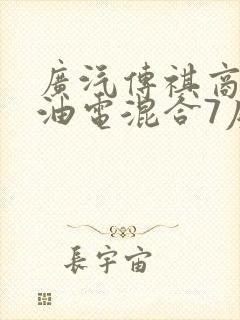 廣汽傳祺商
油電混合7
長宇宙